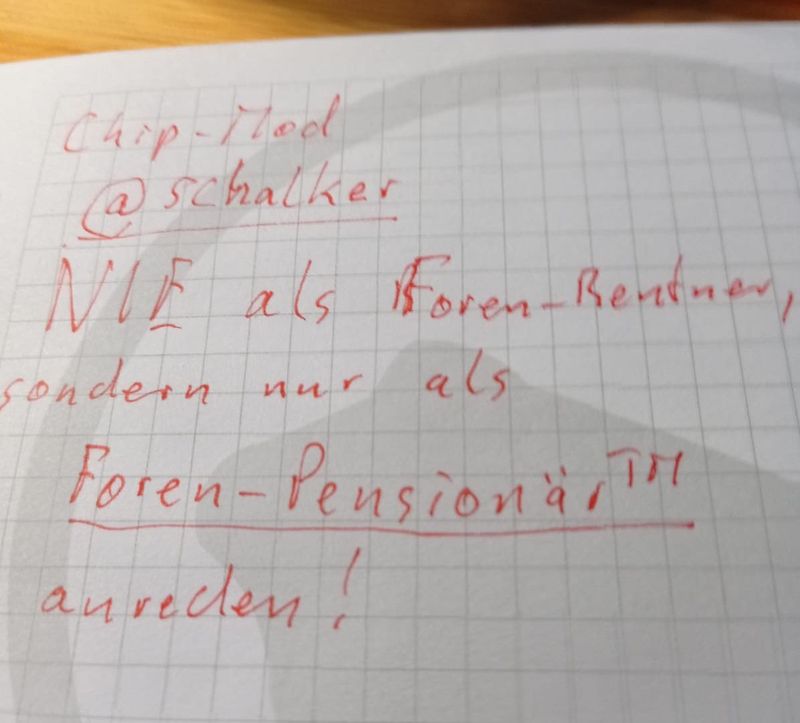 Chip-Mod
@schalker
NIE als Foren-Rentner,
sondern nur als
Foren-Pensionär™
anreden!